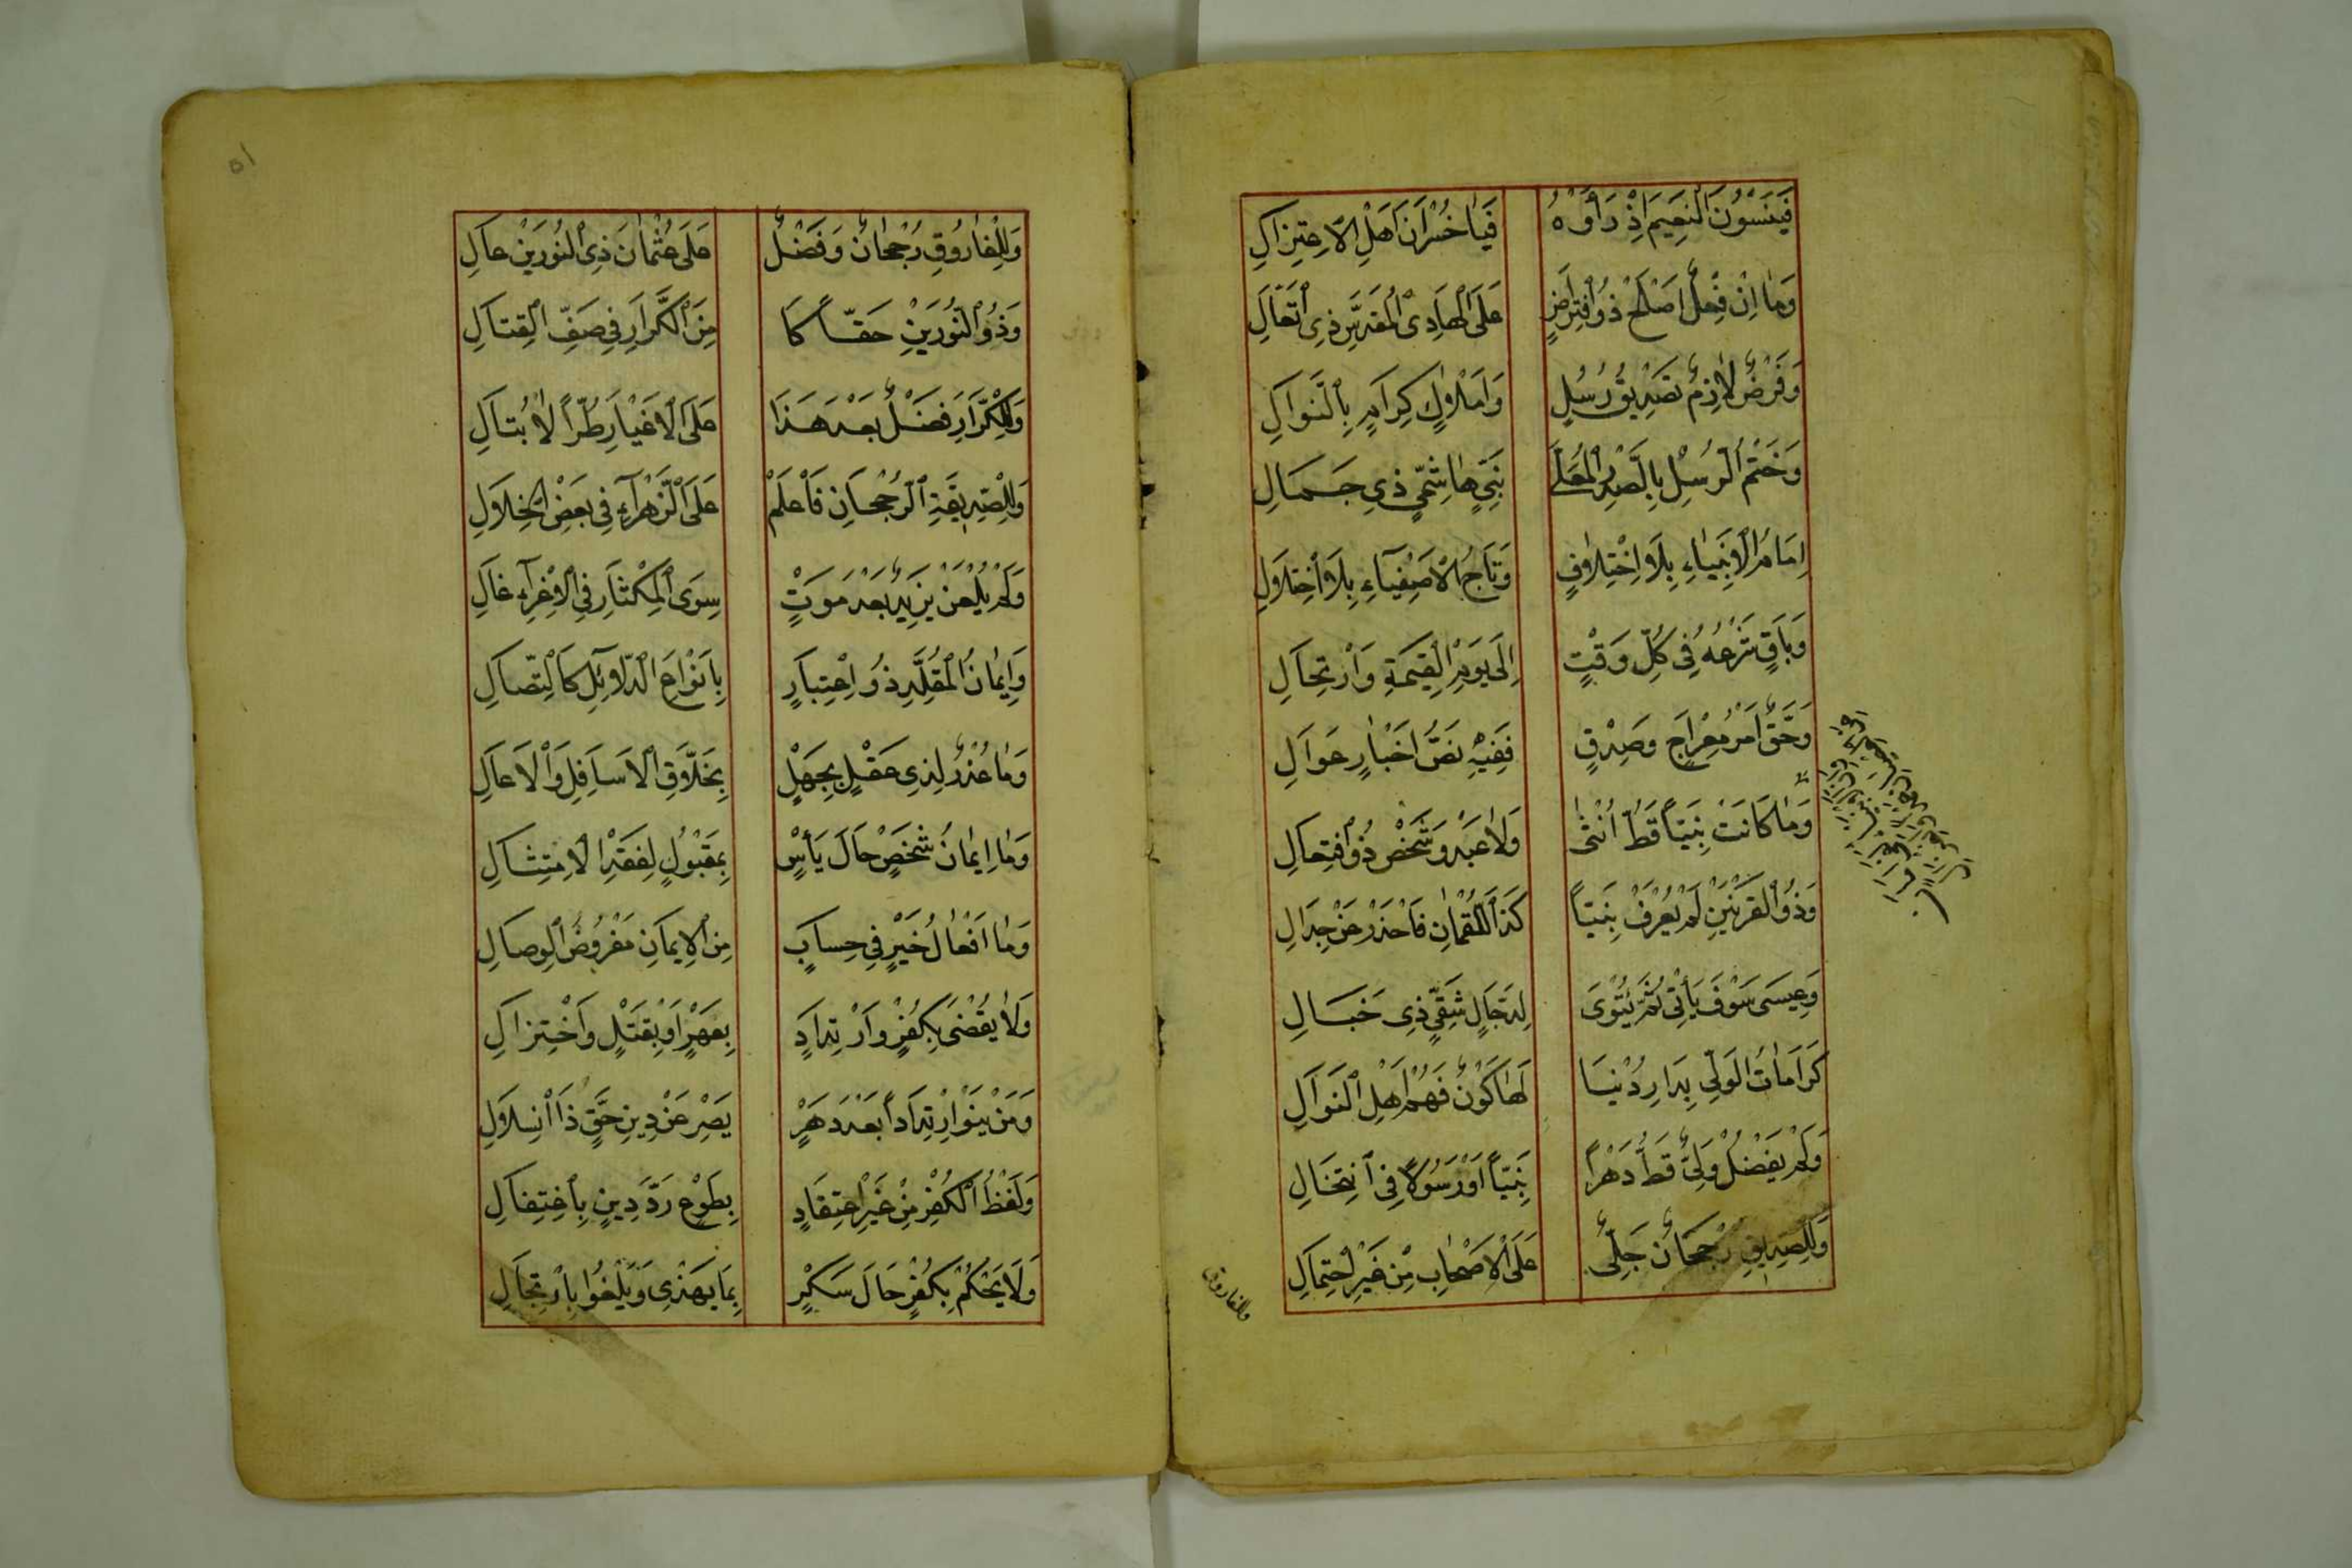 فَيَنْسَوْنَ النَّعِيمَ اِذْ رَاَوْهُ فَيَا خُسْرَانَ اَهْلِ الْاِعْتِزَالِ
وَمَا اِنْ فِعْلٌ اَصْلَحُ ذُو افْتِرَاضٍ عَلَى الْهَادِى الْمُقَدَّسِ ذِى التَّعَالِ
وَفَرْضٌ لَازِمٌ تَصْدِيقُ رُسْلٍ وَاَمْلَاكٍ كِرَامٍ بِالنَّوَالِ
وَخَتْمُ الرُّسْلِ بِالصَّدْرِ الْمُعَلَّى نَبِيٍّ هَاشِمِيٍّ ذِى جَمَالِ
اِمَامُ الْاَنْبِيَاءِ بِلَا اخْتِلَافٍ وَتَاجُ الْاَصْفِيَاءِ بِلَا اخْتِلَالِ
وَبَاقٍ شَرْعُهُ فِى كُلِّ وَقْتٍ اِلَى يَوْمِ الْقِيمَةِ وَارْتِحَالِ
وَحَقٌّ اَمْرُ مِعْرَاجٍ وَصِدْقٍ فَفِيْهِ نَصُّ اَخْبَارٍ عَوَالِ
وَمَا كَانَتْ نَبِيّاً قَطُّ اُنْثَى وَلَا عَبْدٌ وَشَخْصٌ ذُو افْتِعَالِ
وَذُو الْقَرْنَيْنِ لَمْ يُعْرَفْ نَبِيّاً كَذَا لُقْمَانُ فَاحْذَرْ عَنْ جِدَالِ
وَعِيسَى سَوْفَ يَأْتِى ثُمَّ يُتْوِى لِدَجَّالٍ شَقِيٍّ ذِى خَبَالِ
كَرَامَاتُ الْوَلِيِّ بِدَارِ دُنْيَا لَهَا كَوْنٌ فَهُمْ اَهْلُ النَّوَالِ
وَلَمْ يَفْضُلْ وَلِيٌّ قَطُّ دَهْراً نَبِيّاً اَوْ رَسُولاً فِى انْتِحَالِ
وَلِلصِّدِّيقِ رُجْحَانٌ جَلِيٌّ عَلَى الْاَصْحَابِ مِنْ غَيْرِ احْتِمَالِ
وللفاروق
٥١
وَلِلْفَارُوقِ رُجْحَانٌ وَفَضْلٌ عَلَى عُثْمَانَ ذِى النُّورَيْنِ عَالِ
وَذُو النُّورَيْنِ حَقّاً كَا مِنَ الْكَرَّارِ فِى صَفِّ الْقِتَالِ
وَلِلْكَرَّارِ فَضْلٌ بَعْدَ هَذَا عَلَى الْاَغْيَارِ طُرّاً لَا تُبَالِ
وَلِلصِّدِّيقَةِ الرُّجْحَانُ فَاعْلَمْ عَلَى الزَّهْرَآءِ فِى بَعْضِ الْخِلَالِ
وَلَمْ يَلْعَنْ يَزِيدٌ بَعْدَ مَوْتٍ سِوَى الْمِكْثَارِ فِى الْاِغْرَآءِ غَالِ
وَاِيمَانُ الْمُقَلِّدِ ذُو اعْتِبَارٍ بِاَنْوَاعِ الدَّلَائِلِ كَالنِّصَالِ
وَمَا عُذْرٌ لِذِى عَقْلٍ بِجَهْلٍ بِخَلَّاقِ الْاَسَافِلِ وَالْاَعَالِ
وَمَا اِيمَانُ شَخْصٍ حَالَ يَأْسٍ بِمَقْبُولٍ لِفَقْدِ الْاِمْتِثَالِ
وَمَا اَفْعَالُ خَيْرٍ فِى حِسَابٍ مِنَ الْاِيمَانِ مَفْرُوضُ الْوِصَالِ
وَلَا يُقْضَى بِكُفْرٍ وَارْتِدَادٍ بِعَهْرٍ اَوْ بِقَتْلٍ وَاخْتِزَالِ
وَمَنْ يَنْوِ ارْتِدَاداً بَعْدَ دَهْرٍ يَصِرْ عَنْ دِينِ حَقٍّ ذَا انْسِلَالِ
وَلَفْظُ الْكُفْرِ مِنْ غَيْرِ اعْتِقَادٍ بِطَوْعٍ رَدُّ دِينٍ بِاغْتِفَالِ
وَلَا يُحْكَمْ بِكُفْرٍ حَالَ سُكْرٍ بِمَا يَهْذِى وَيَلْغُوا بِارْتِجَالِ